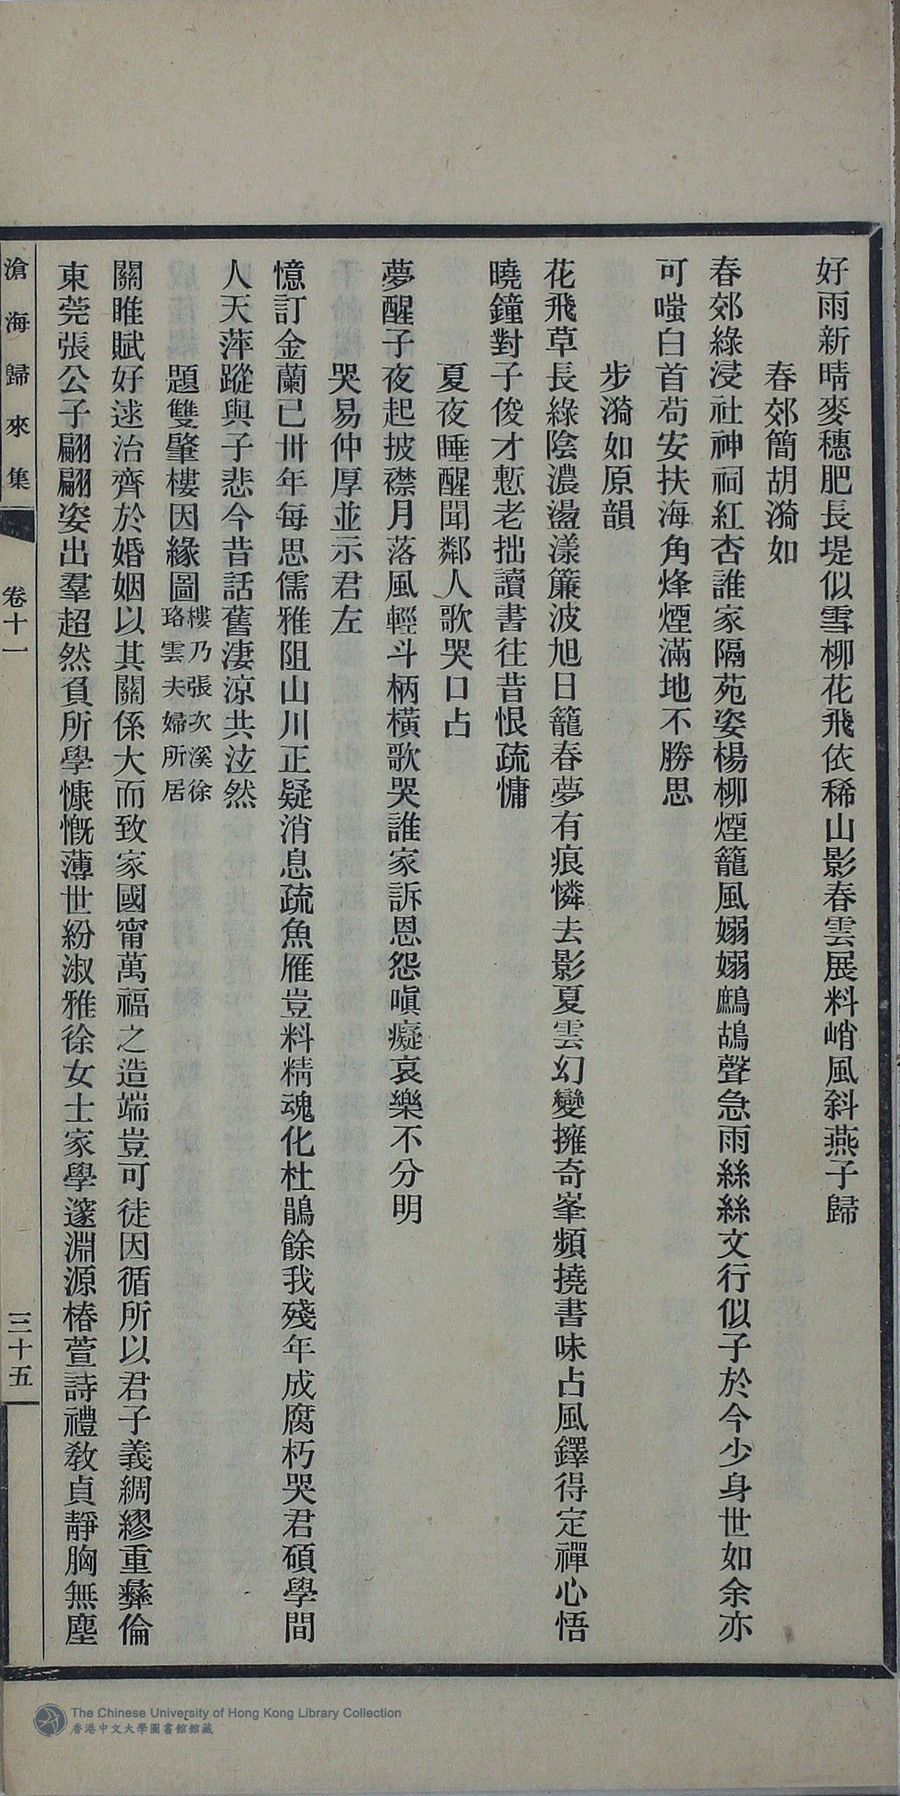 好雨新晴麥穗肥長堤似雪柳花飛依稀山影春雲展料峭風斜燕子歸
春郊簡胡漪如
春郊綠浸社神祠紅杏誰家隔苑姿楊柳煙籠風嫋嫋鷓鴣聲急雨絲絲文行似子於今少身世如余亦
可嗤白首苟安扶海角烽煙滿地不勝思
步漪如原韻
花飛草長綠陰濃盪漾簾波旭日籠春夢有痕憐去影夏雲幻變擁奇峯頻撓書味占風鐸得定禪心悟
曉鐘對子俊才慙老拙讀書往昔恨疏慵
夏夜睡醒聞鄰人歌哭口占
夢醒子夜起披襟月落風輕斗柄橫歌哭誰家訴恩怨嗔癡哀樂不分明
哭易仲厚並示君左
憶訂金蘭已卅年每思儒雅阻山川正疑消息疏魚雁豈料精魂化杜鵑餘我殘年成腐朽哭君碩學間
人天萍蹤與子悲今昔話舊淒涼共泫然
題雙肇樓因緣圖樓乃張次溪徐
珞雲夫婦所居
關雎賦好逑治齊於婚姻以其關係大而致家國甯萬福之造端豈可徒因循所以君子義綢繆重彝倫
東莞張公子翩翩姿出羣超然負所學慷慨薄世紛淑雅徐女士家學邃淵源椿萱詩禮教貞靜胸無塵
滄海歸來集
卷十一
三十五
The Chinese University of Hong Kong Library Collection
香港中文大學圖書館館藏